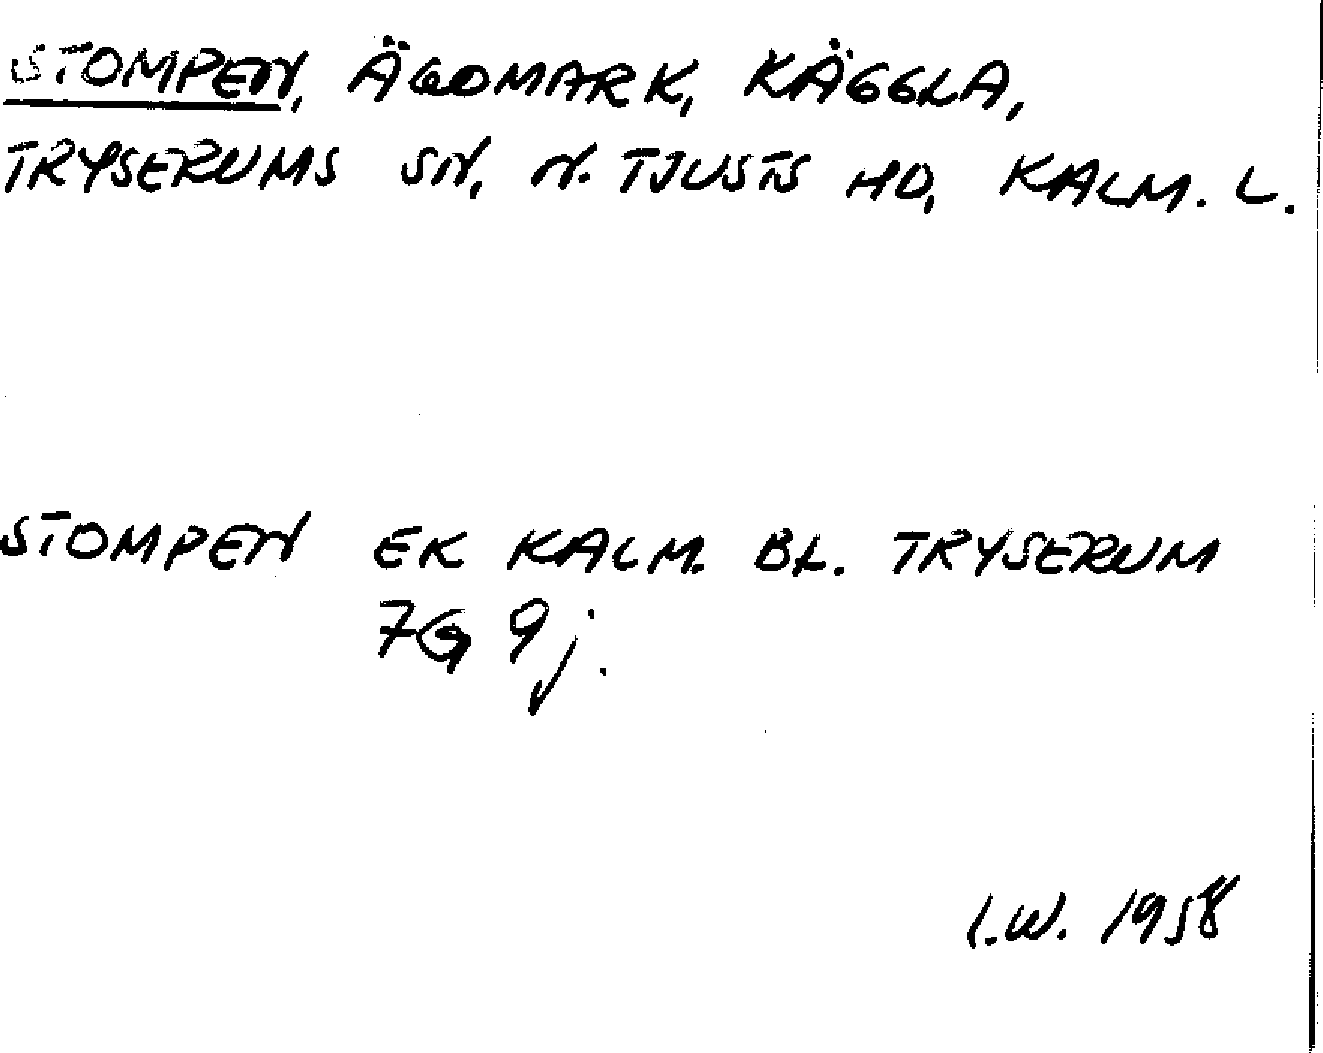 STOMPEN, ÄGOMARK, KÄGGLA,
TRYSERUMS SN, N. TJUSTS HD, KALM. L.
STOMPEN EK KALM. BL. TRYSERUM
7G 9j.
I.W. 1958